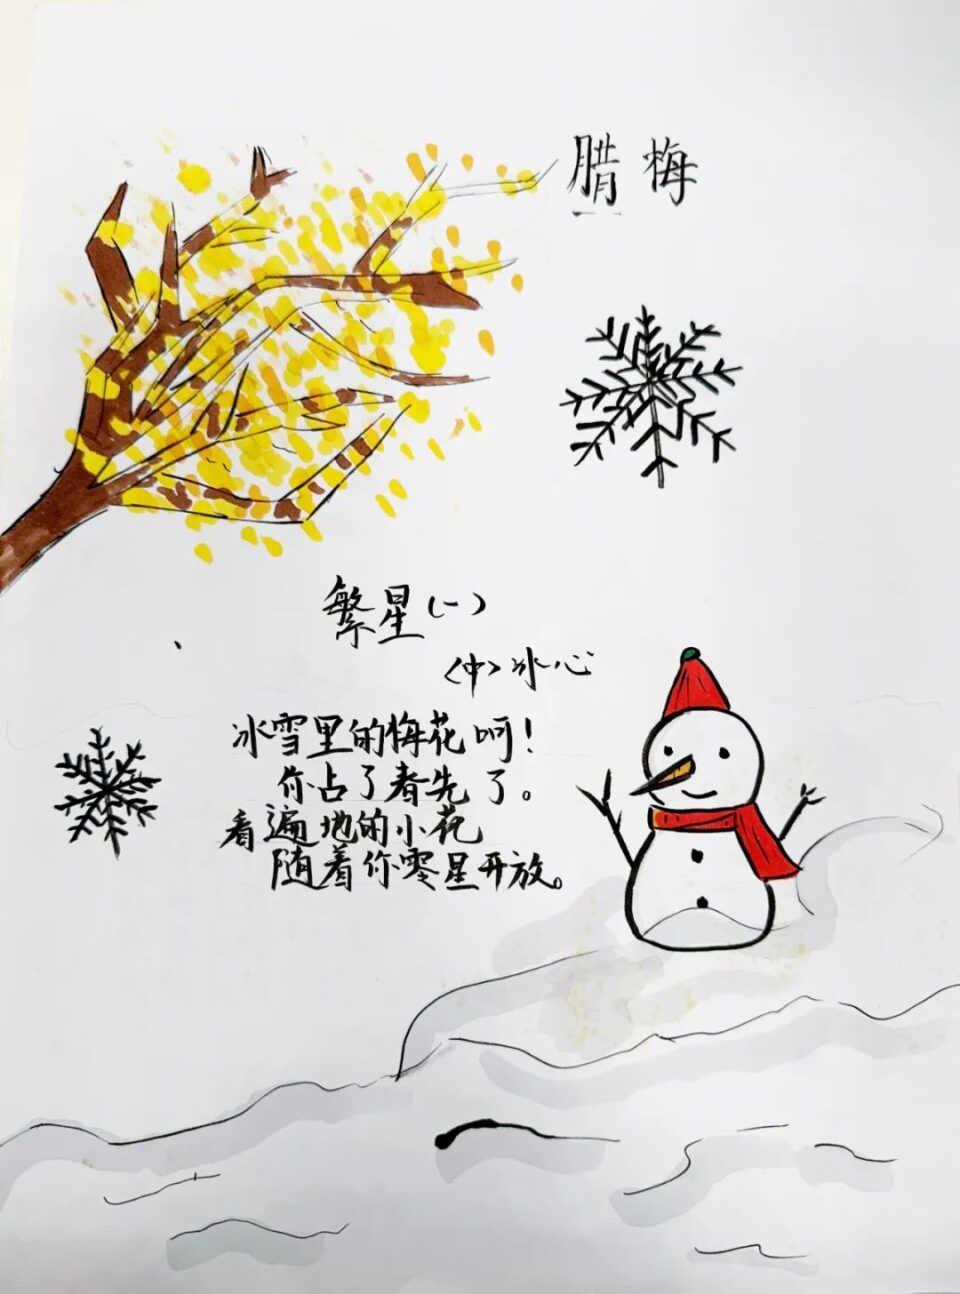 腊梅
繁星(一)
<中>冰心
冰雪里的梅花呵！
你占了春先了。
看遍地的小花
随着你零星开放。